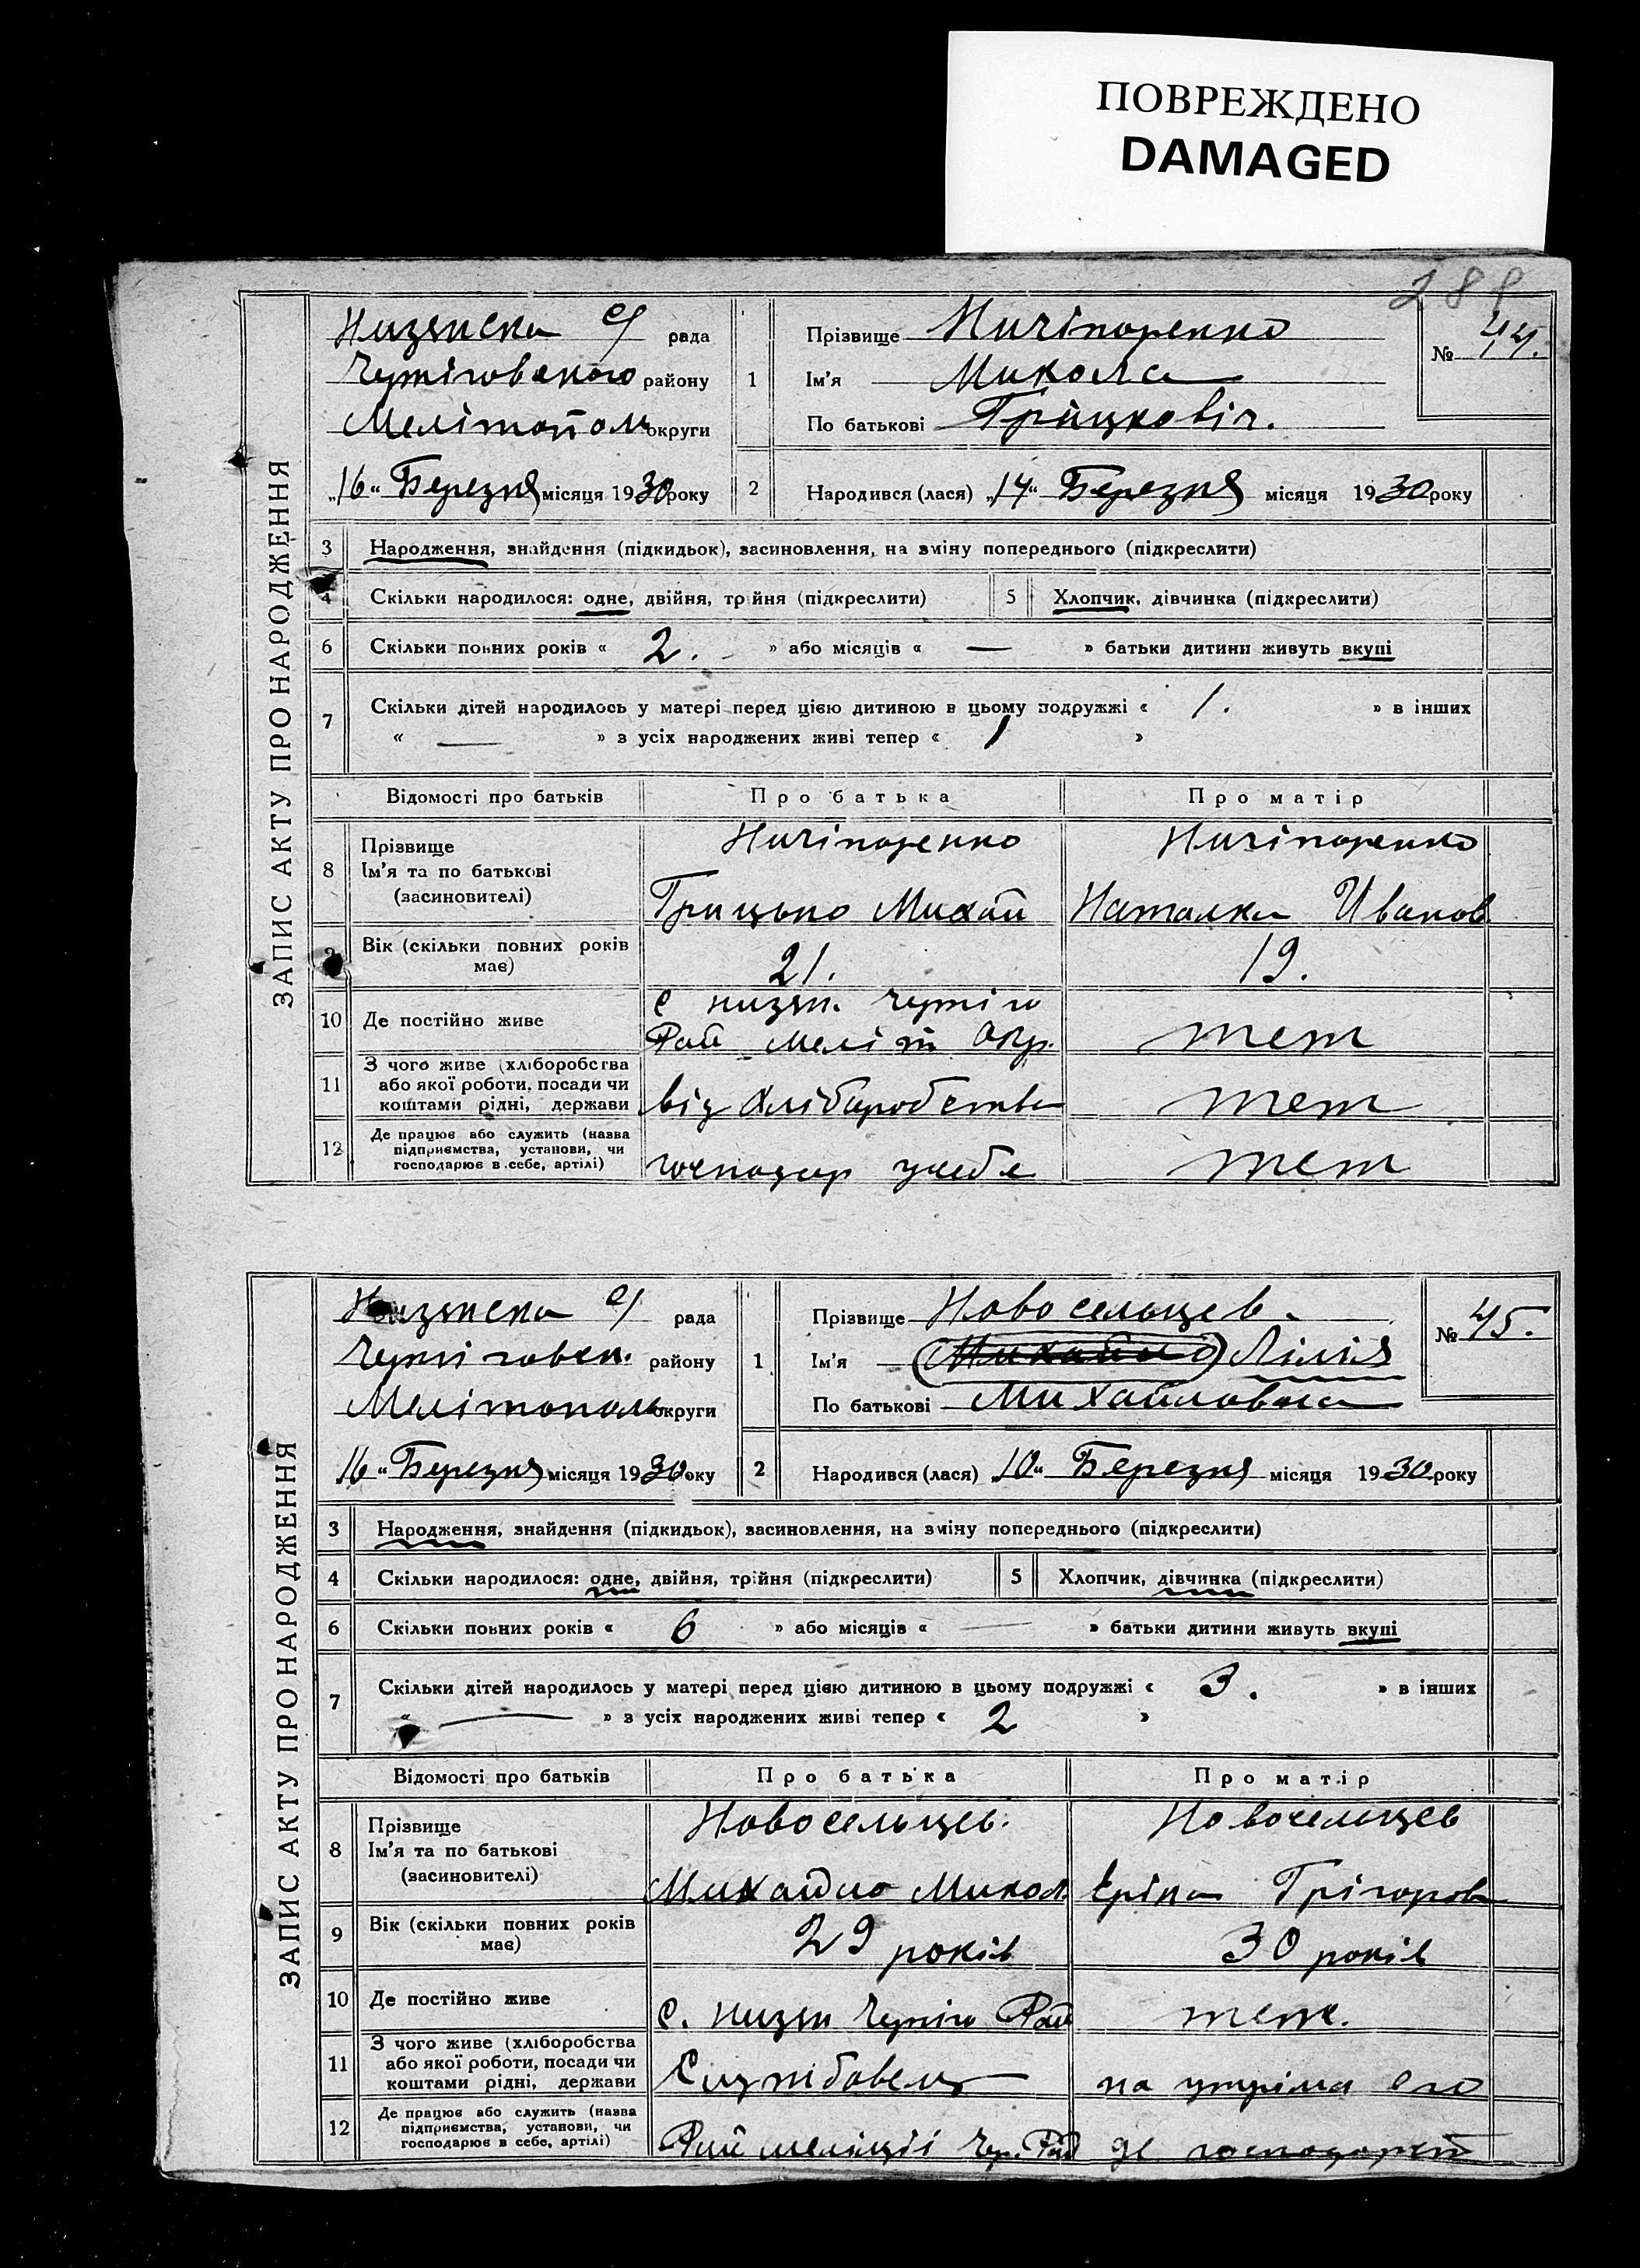 ПОВРЕЖДЕНО
DAMAGED
288
ЗАПИС АКТУ ПРО НАРОДЖЕННЯ
Низянска с/ рада
Черніговского району
Мелітополь округи
„16“ Березня місяця 1930 року
1
Прізвище Ничіпоренко
Ім'я Микола
По батькові Грицковіч.
№ 44.
2
Народився (лася) „14“ Березня місяця 1930 року
3 Народження, знайдення (підкидьок), засиновлення, на зміну попереднього (підкреслити)
4 Скільки народилося: одне, двійня, трійня (підкреслити) 5 Хлопчик, дівчинка (підкреслити)
6 Скільки повних років « 2. » або місяців « — » батьки дитини живуть вкупі
7 Скільки дітей народилось у матері перед цією дитиною в цьому подружжі « 1. » в інших
« — » з усіх народжених живі тепер « 1 »
Відомості про батьків Про батька Про матір
8 Прізвище
Ім'я та по батькові
(засиновителі)
Ничіпоренко
Грицько Михай
Ничіпоренко
Наталка Иванов
9 Вік (скільки повних років має) 21. 19.
10 Де постійно живе
с низян. Черніго
Рай Меліт Окр.
теж
11 З чого живе (хліборобства
або якої роботи, посади чи
коштами рідні, держави
від хліборобства
теж
12 Де працює або служить (назва
підприємства, установи, чи
господарює в себе, артілі)
господар усебе
теж
ЗАПИС АКТУ ПРО НАРОДЖЕННЯ
Низянска с/ рада
Чернтговск. району
Мелітополь округи
16“ Березня місяця 1930 року
1
Прізвище Новосельцев
Ім'я (Михайло) Лілія
По батькові Михайловна
№ 45.
2
Народився (лася) „10“ Березня місяця 1930 року
3 Народження, знайдення (підкидьок), засиновлення, на зміну попереднього (підкреслити)
4 Скільки народилося: одне, двійня, трійня (підкреслити) 5 Хлопчик, дівчинка (підкреслити)
6 Скільки повних років « 6 » або місяців « — » батьки дитини живуть вкупі
7 Скільки дітей народилось у матері перед цією дитиною в цьому подружжі « 3. » в інших
« — » з усіх народжених живі тепер « 2 »
Відомості про батьків Про батька Про матір
8 Прізвище
Ім'я та по батькові
(засиновителі)
Новосельцев.
Михайло Микол
Новосельцев
Еріна Грігоров
9 Вік (скільки повних років має) 29 років 30 років
10 Де постійно живе
с. низян Черніго Рай
теж.
11 З чого живе (хліборобства
або якої роботи, посади чи
коштами рідні, держави
Службовець
на утріма его
12 Де працює або служить (назва
підприємства, установи, чи
господарює в себе, артілі)
Рай меліції Чер. Рай
де господарст